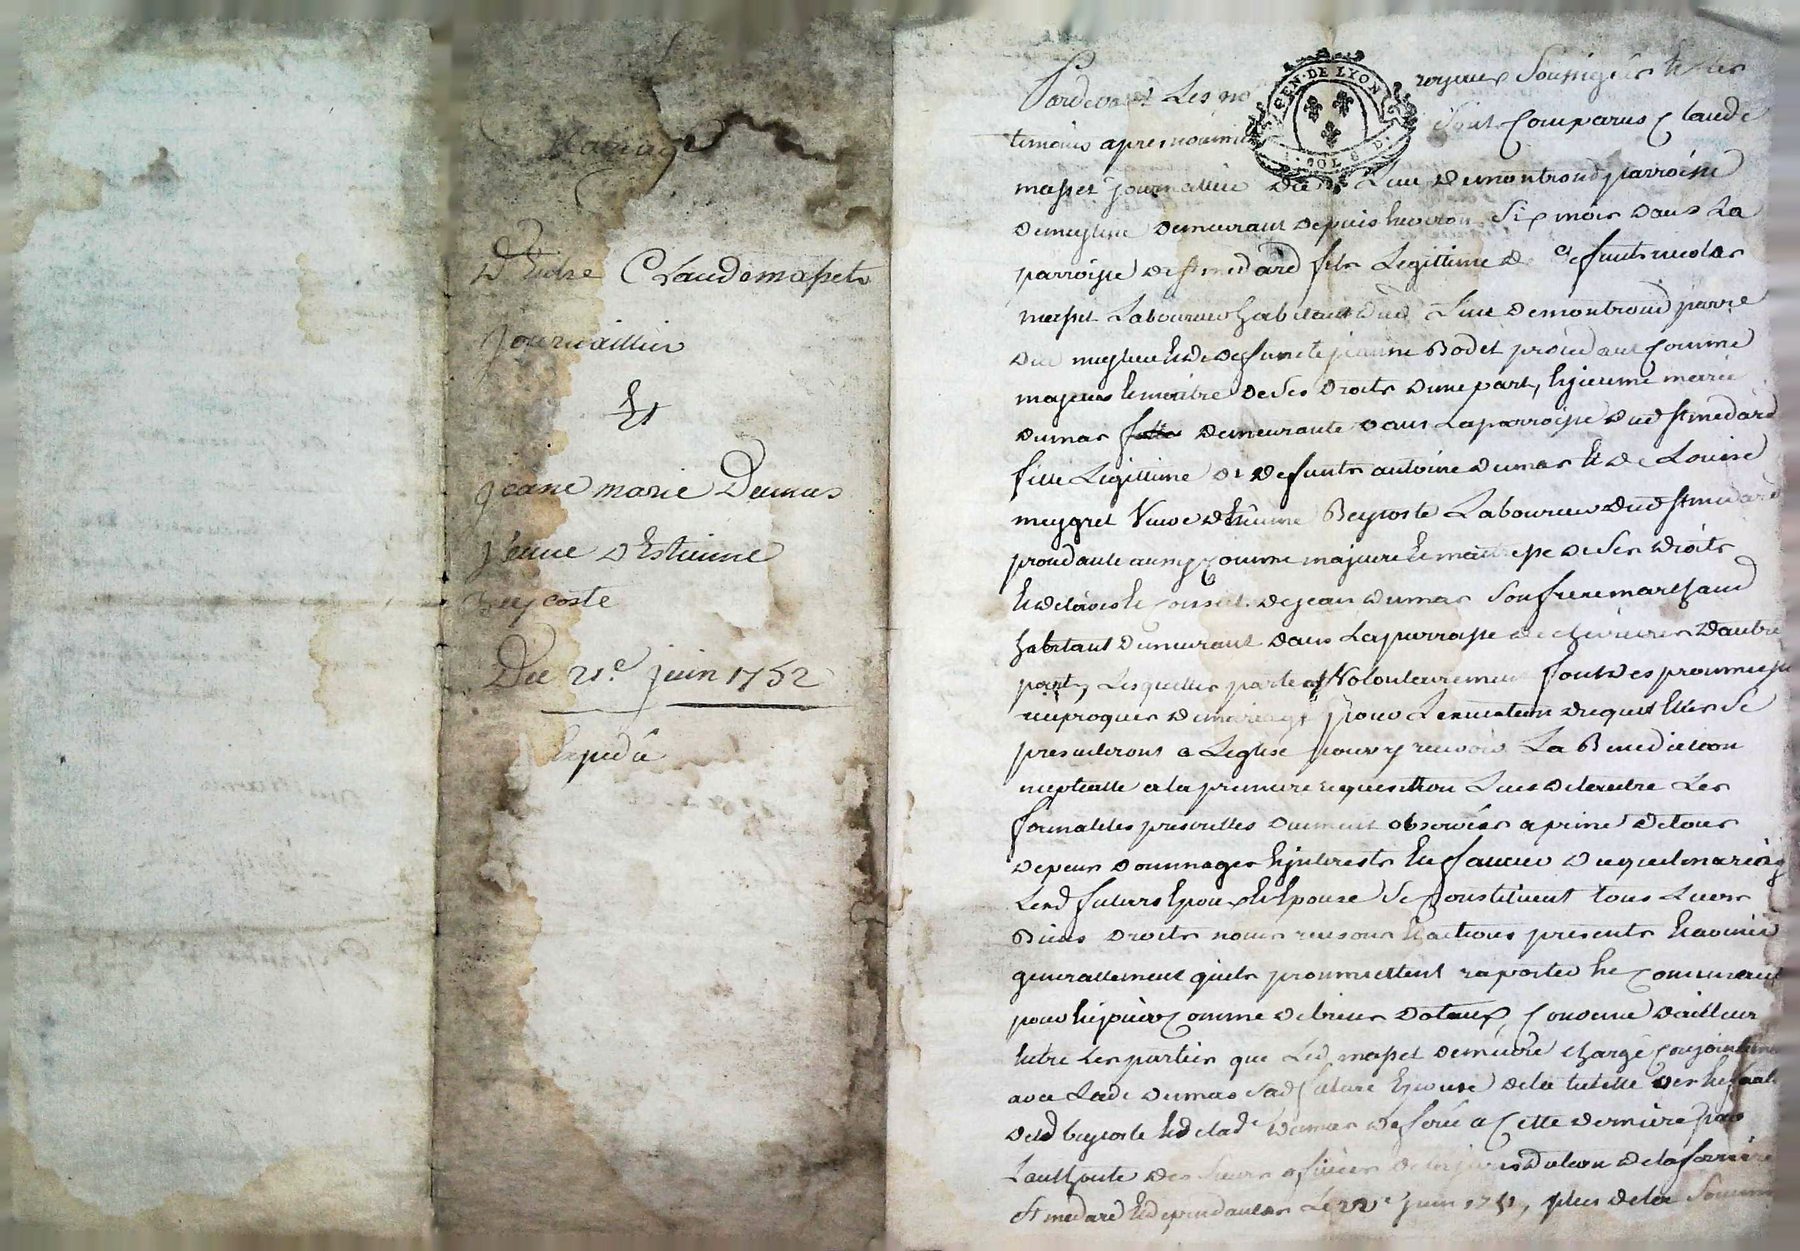 Mariage
D'Entre Claude masset
Journaillier
Et
Jeane marie Dumas
Veuve d'Estienne
Beycoste
Du 21.e juin 1752
Expedié
GEN. DE LYON
SOL 8 D.
Pardevant Les no royaux Soussignés Et les
temoins apres nommés Sont Comparus Claude
masset Journallier du Lieu de montrond parroisse
de meylieu demeurant depuis Environ Six mois dans La
parroisse de st medard fils Legittime de defunts nicolas
masset Laboureur habitant dud. Lieu de montrond parre
de meylieu Et de defuncte jeanne Bodet procedant Comme
majeur Et maitre de Ses droits d'une part, Et jeanne marie
dumas demeurante dans La parroisse dud st medard
fille Legittime de defunts antoine dumas Et de Louise
meygret Veuve d'Etienne Beycoste Laboureur dud st medard
procedante aussy Comme majeure Et maitresse de Ses droits
Et de L'avis Et Conseil de jean dumas Son frere marchand
habitant demeurant dans La parroisse de chevrieres d'autre
part, Lesquelles parties Volontairement font des promesses
reciproques de mariage pour L'execution duquel Elles Se
presenteront a L'eglise pour y recevoir La Benediction
nuptialle a la premiere requisition L'une de L'autre Les
formalités prescrittes duement observées a peine de tous
depens dommages Et jnterests En faveur duquel mariage
Lesd futurs Epoux Et Epouse Se Constituent tous Leurs
Biens droits noms raisons Et actions presents Et avenir
generallement quils promettent raporter En Commun
pour En jouir Comme de biens dotaux, Convenu d'ailleurs
Entre Les parties que Led. masset demeure chargé Conjointement
avec Lade dumas Sad future Epouse de la tutelle des Enfants
dud beycoste Et de lade dumas deferée a Cette derniere par
L'authorité des Sieurs officiers de la jurisdiction de
St medard Et dependances Le 22e juin 1751, plus de la Somme